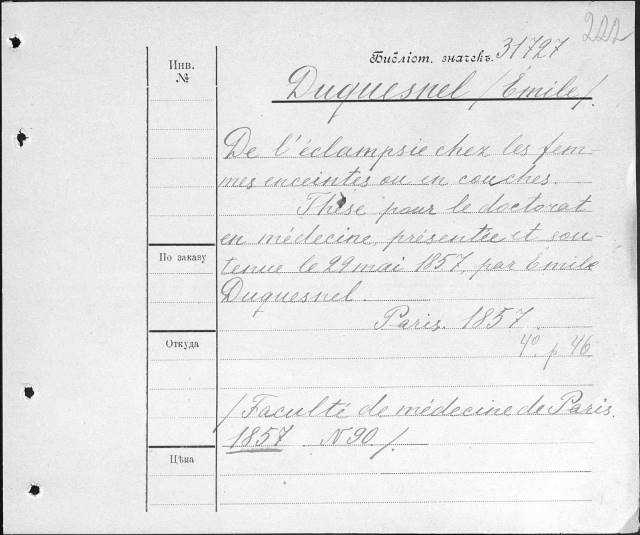 222
Библіот. значекъ. 31727
Инв.
№
Duquesnel /Émile/.
De l'éclampsie chez les fem-
mes enceintes ou en couches.
Thèse pour le doctorat
en médecine, présentée et sou-
По заказу
tenue le 29 mai 1857, par Emile
Duquesnel.
Paris. 1857.
Откуда
4º. p 46
/Faculté de médecine de Paris.
1857 N 90/.
Цѣна